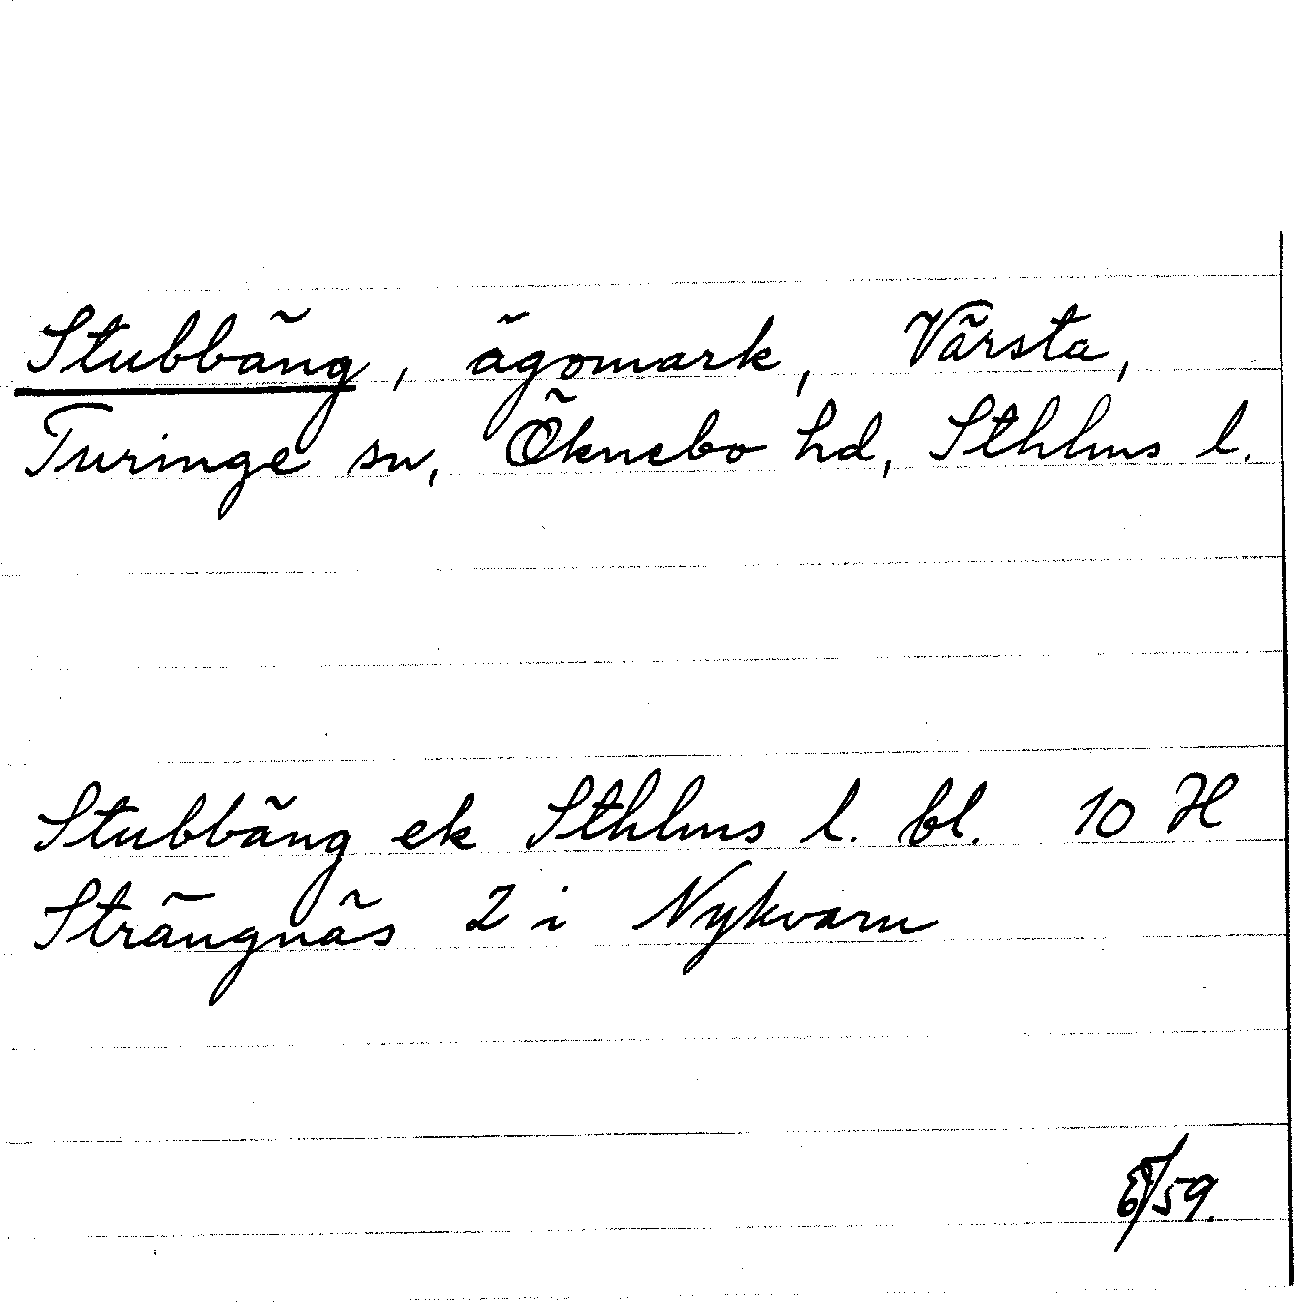 Stubbäng, ägomark, Vårsta,
Turinge sn, Öknebo hd, Sthlms l.
Stubbäng ek Sthlms l. bl. 10 H
Strängnäs 2 i Nykvarn
/59.